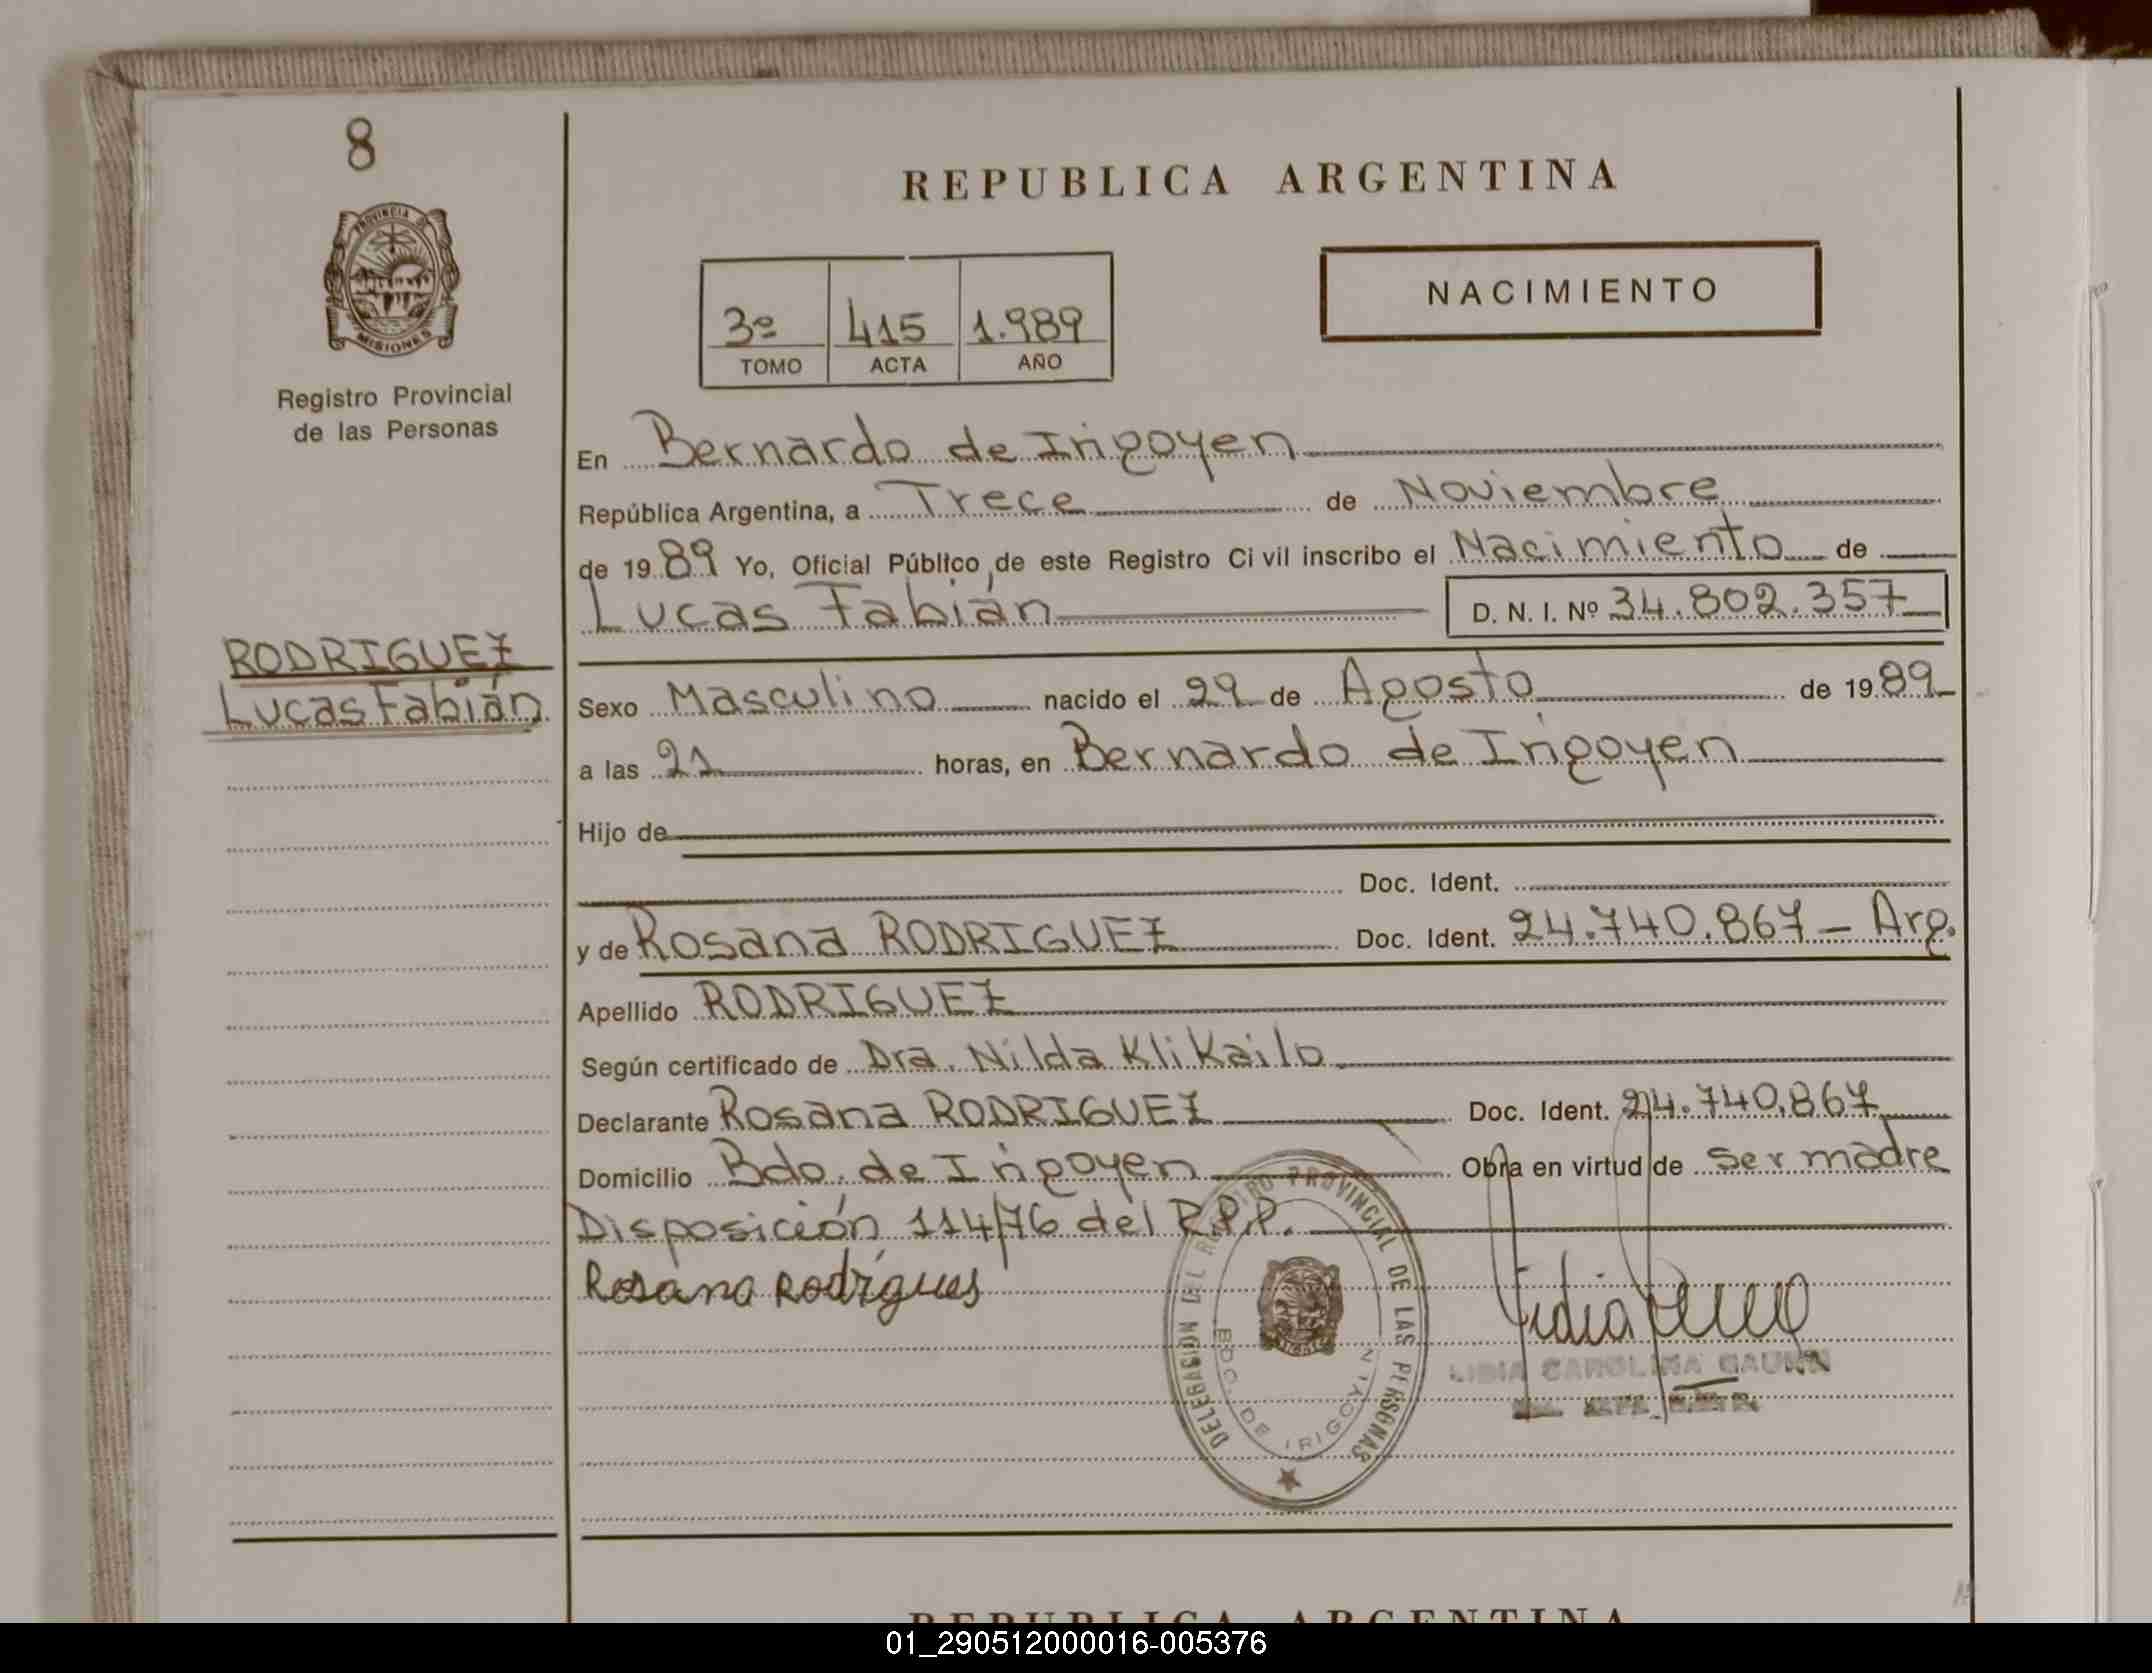 8
PROVINCIA DE
MISIONES
Registro Provincial
de las Personas
REPUBLICA ARGENTINA
3º 415 1.989
TOMO ACTA AÑO
NACIMIENTO
En Bernardo de Irigoyen
República Argentina, a Trece de Noviembre
de 1989 Yo, Oficial Público, de este Registro Civil inscribo el Nacimiento de
Lucas Fabián D. N. I. Nº 34.802.357
RODRIGUEZ
Lucas Fabián
Sexo Masculino nacido el 29 de Agosto de 1989
a las 21 horas, en Bernardo de Irigoyen
Hijo de
Doc. Ident.
y de Rosana RODRIGUEZ Doc. Ident. 24.740.867 - Arg.
Apellido RODRIGUEZ
Según certificado de Dra. Nilda Klikailo
Declarante Rosana RODRIGUEZ Doc. Ident. 24.740.867
Domicilio Bdo. de Irigoyen Obra en virtud de ser madre
Disposición 114/76 del R.P.P.
Rosana Rodrigues
DELEGACION DEL REGISTRO PROVINCIAL DE LAS PERSONAS
BDO. DE IRIGOYEN
LIDIA CAROLINA
REPUBLICA ARGENTINA
01_290512000016-005376